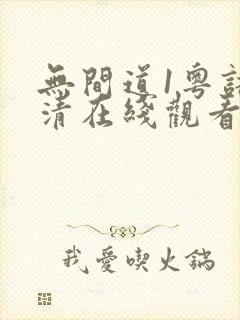 無間道1粵語
清在綫觀看
我愛喫火鍋